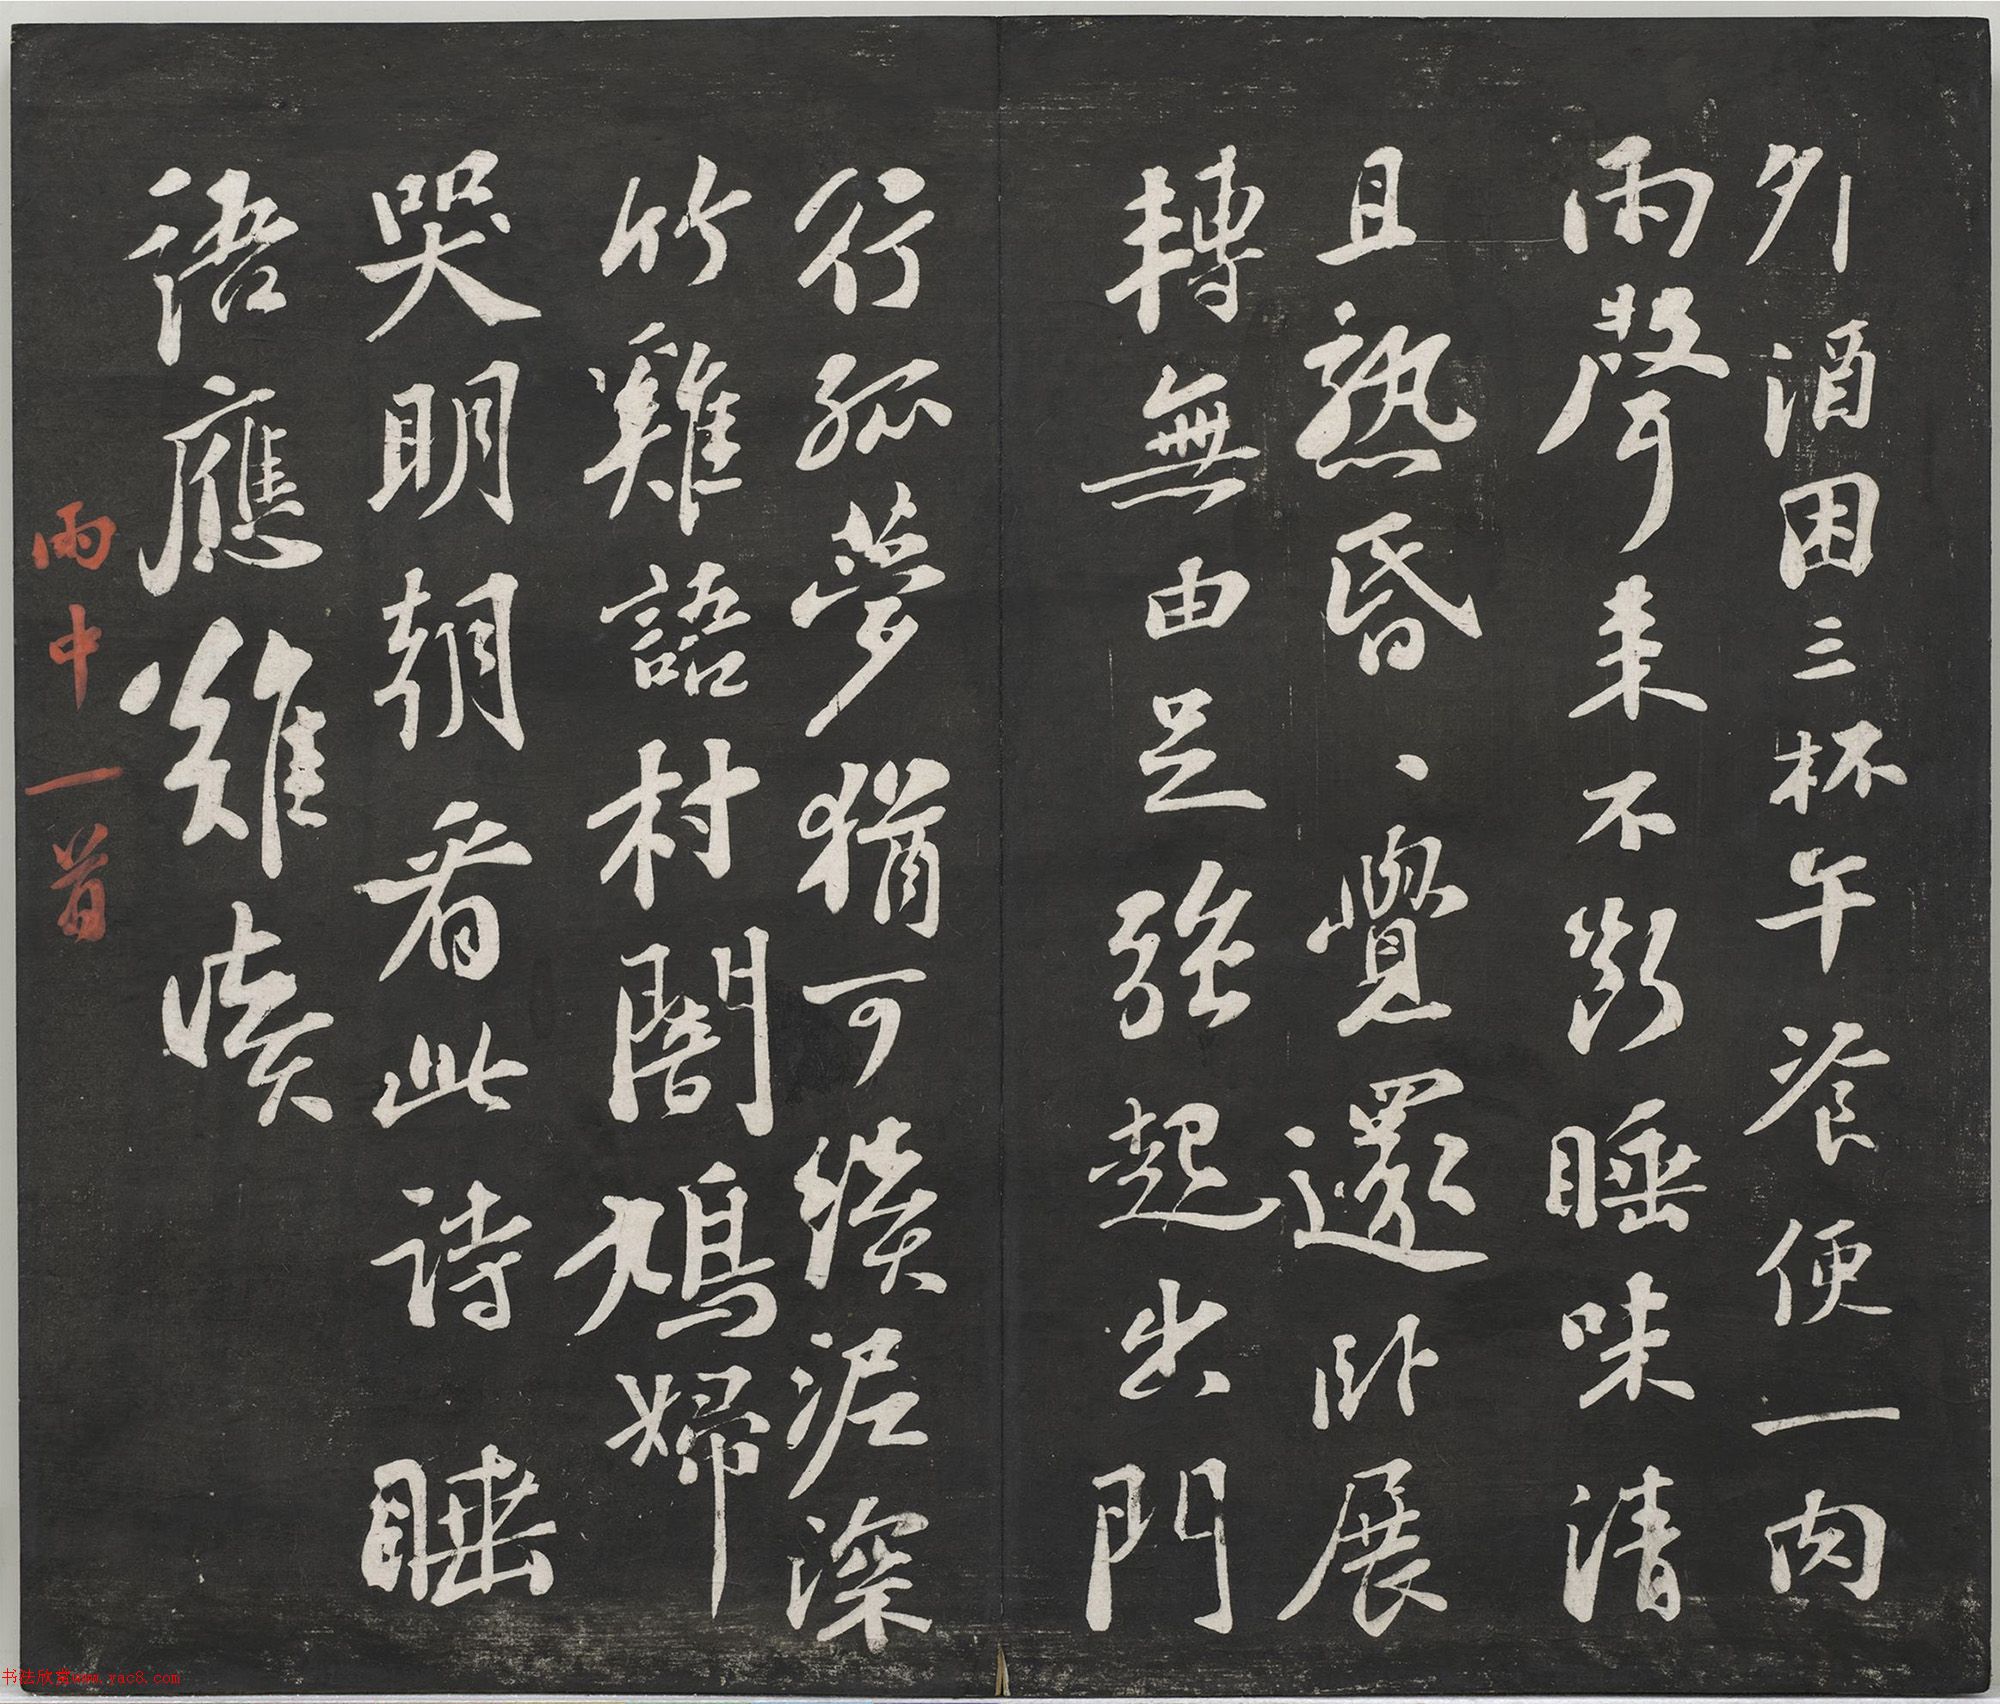 夘酒困三杯午飡便一肉
雨聲来不斷睡味清
且熟昏、覺還卧展
轉無由足強起出門
行孤夢猶可續泥深
竹雞語村闇鳩婦
哭明朝看此詩睡
語應難讀
雨中一首
书法欣赏www.yac8.com